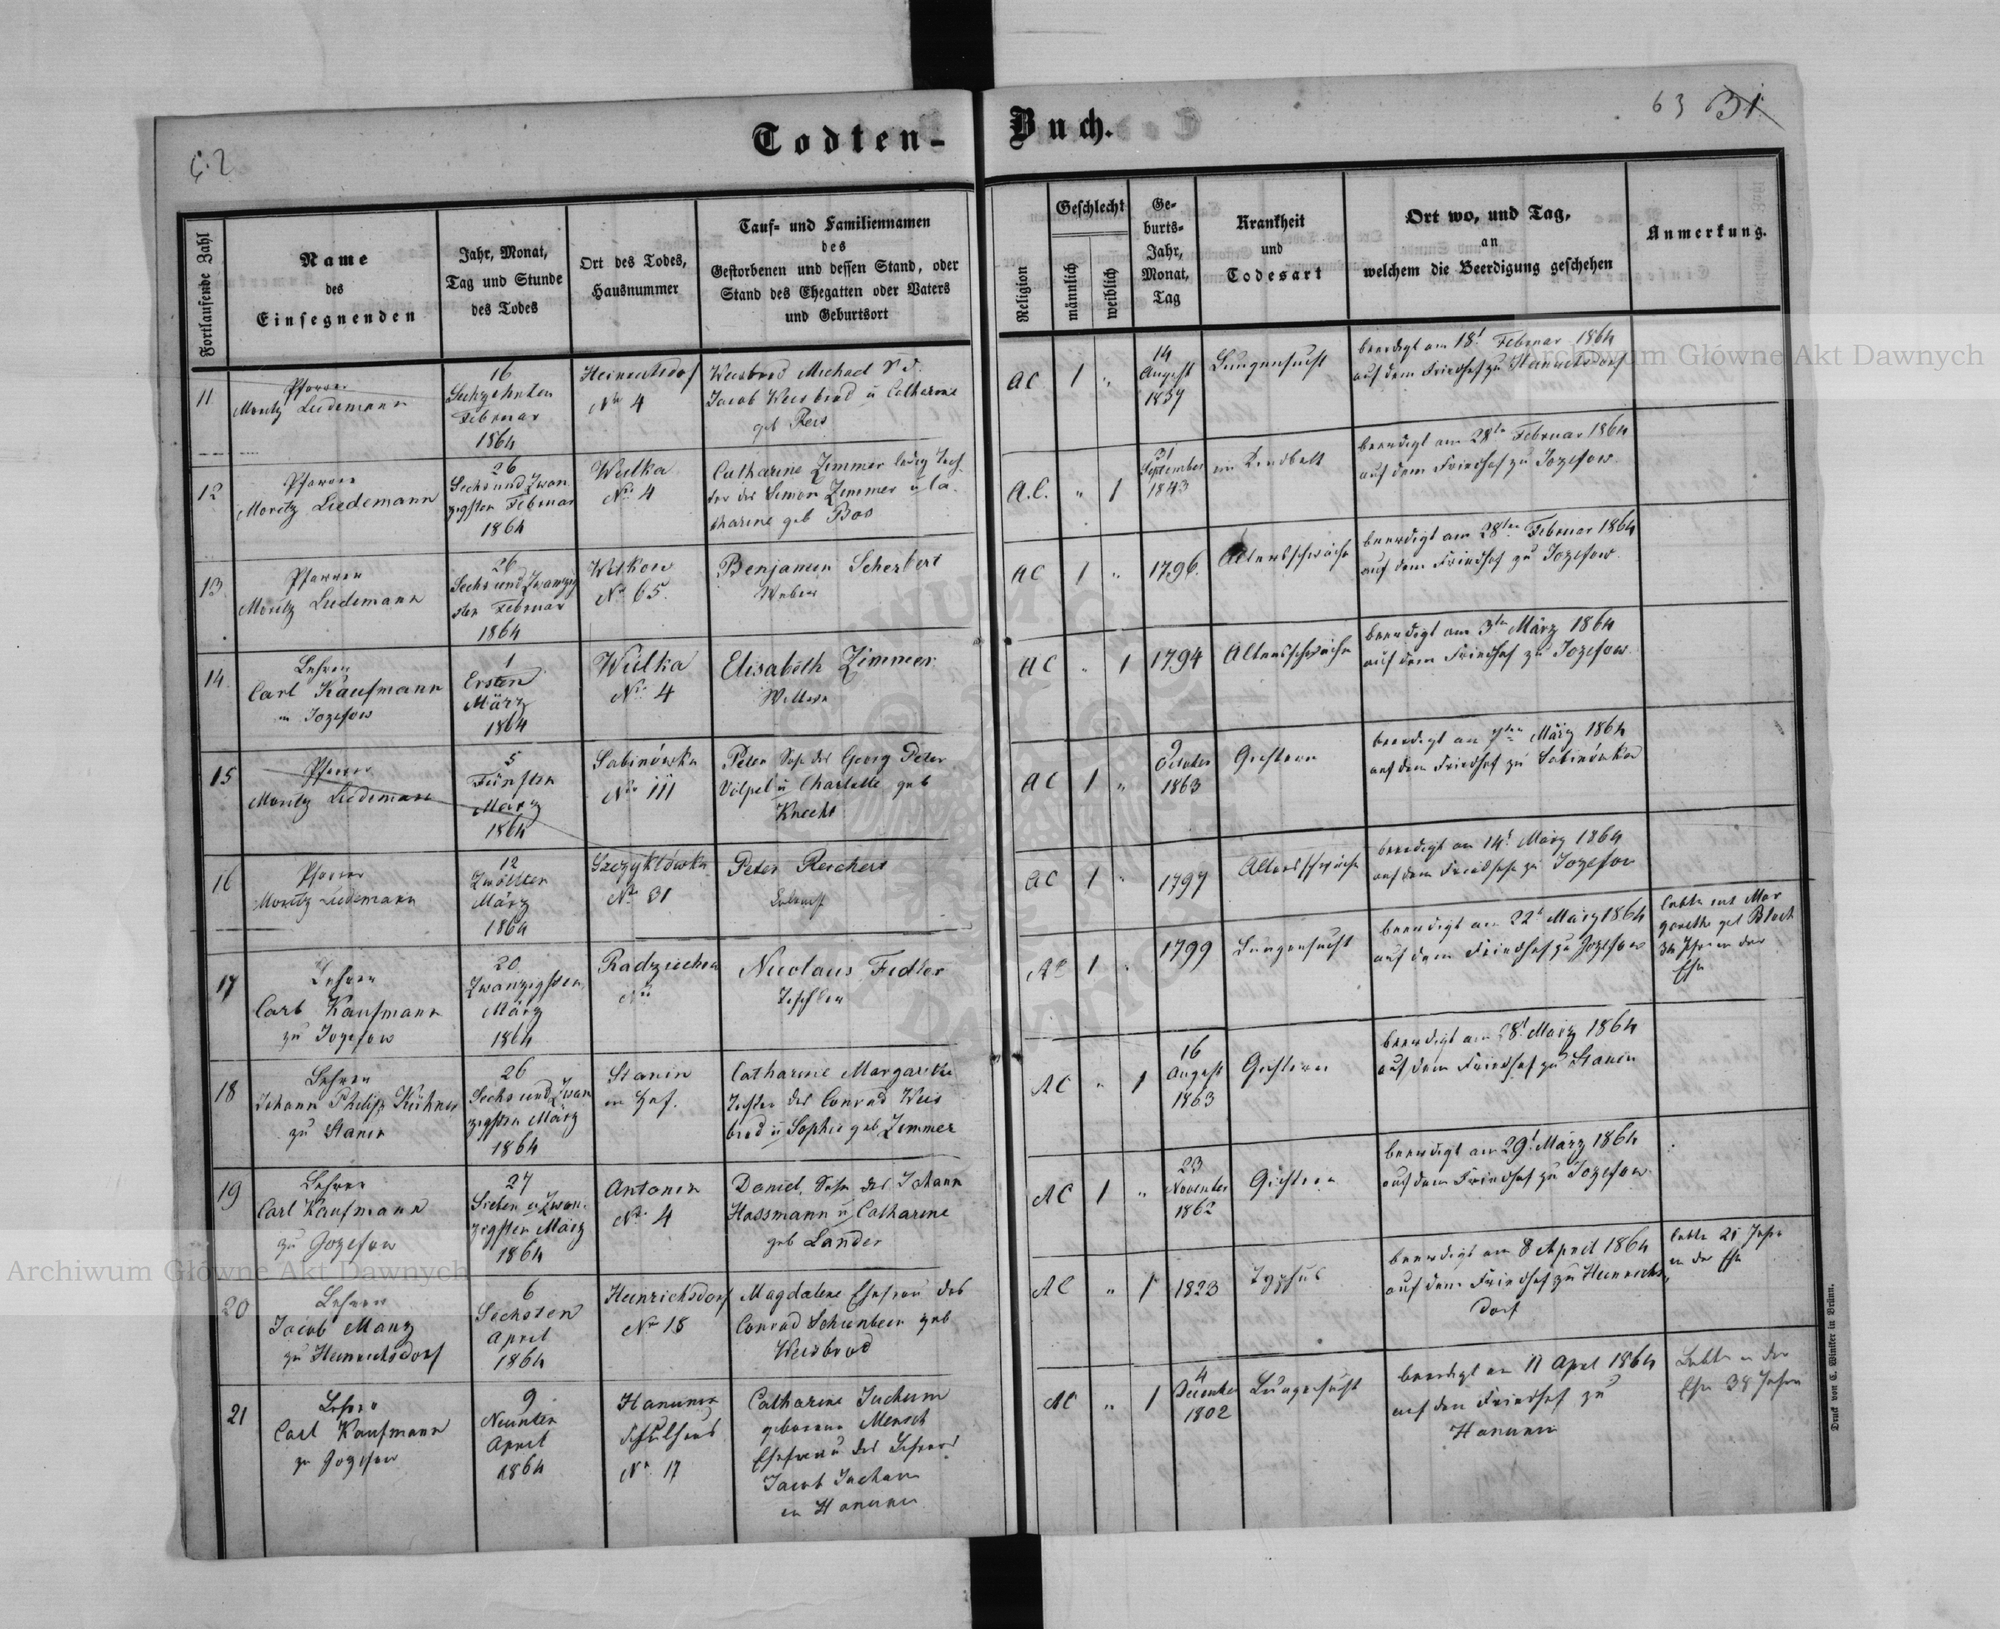 62
Todten-
Buch.
63 31
Fortlaufende Zahl
Name
des
Einsegnenden
Jahr, Monat,
Tag und Stunde
des Todes
Ort des Todes,
Hausnummer
Tauf- und Familiennamen
des
Gestorbenen und dessen Stand, oder
Stand des Ehegatten oder Vaters
und Geburtsort
Religion
Geschlecht
männlich
weiblich
Ge-
burts-
Jahr,
Monat,
Tag
Krankheit
und
Todesart
Ort wo, und Tag,
an
welchem die Beerdigung geschehen
Anmerkung.
11
Pfarrer
Moritz Liedemann
16
Sechzehnten
Februar
1864
Heinrichsdorf
No 4
Weisbrod Michael S. d.
Jacob Weisbrod u Catharine
geb Reis
AC
1
"
14
August
Lungensucht
beerdigt am 18t Februar 1864
auf dem Friedhof zu Heinrichsdorf
12
Pfarrer
Moritz Liedemann
26
Sechs und Zwan
zigsten Februar
1864
Wulka
No 4
Catharine Zimmer ledig Toch
ter des Simon Zimmer u Ca
tharine geb Bos
A.C.
"
1
September
1843
im Kindbett
beerdigt am 28ten Februar 1864
auf dem Friedhof zu Jozefow
13
Pfarrer
Moritz Liedemann
26
Sechs und Zwanzig
sten Februar
1864
Witkow
No 65.
Benjamin Scherbert
Weber
AC
1
"
1796.
Altersschwäche
beerdigt am 28ten Februar 1864
auf dem Friedhof zu Jozefow.
14
Lehrer
Carl Kaufmann
in Jozefow
1
Ersten
März
1864
Wulka
No 4
Elisabeth Zimmer
Wittwe
AC
"
1
1794
Altersschwäche
beerdigt am 3ten März 1864
auf dem Friedhof zu Jozefow
15
Pfarrer
Moritz Liedemann
5
Fünften
März
1864
Sabinówka
No 111
Peter Sohn des Georg Peter
Völpel u Charlotte geb
Knecht
AC
1
"
9
October
1863
Gichtern
beerdigt am 7ten März 1864
auf dem Friedhof zu Sabinówka
16
Pfarrer
Moritz Liedemann
12
Zwölften
März
1864
No 31
Peter Reichert
AC
1
"
1797
Altersschwäche
beerdigt am 14t März 1864
auf dem Friedhofe zu Jozefow
17
Lehrer
Carl Kaufmann
zu Jozefow
20
Zwanzigsten
März
1864
Radziechow
No
Nicolaus Fidler
Tischler
AC
1
"
1799
Lungensucht
beerdigt am 22t März 1864
auf dem Friedhof zu Jozefow
lebte mit Mar
garethe geb Bloch
34 Jahre in der
Ehe
18
Lehrer
Johann Philipp Kühner
zu Stanin
26
Sechs und Zwan
zigsten März
1864
Stanin
im Hof.
Catharine Margarethe
Tochter des Conrad Weis
brod u Sophie geb Zimmer
AC
"
1
16
August
1863
Gichtern
beerdigt am 28t März 1864
auf dem Friedhof zu Stanin
19
Lehrer
Carl Kaufmann
zu Jozefow
27
Sieben u Zwan
zigsten März
1864
Antonin
No 4
Daniel, Sohn des Johann
Hassmann u Catharine
geb Lander
AC
1
"
23
November
1862
Gichtern
beerdigt am 29t März 1864
auf dem Friedhof zu Jozefow.
20
Lehrer
Jacob Manz
zu Heinrichsdorf
6
Sechsten
April
1864
Heinrichsdorf
No 18
Magdalene Ehefrau des
Conrad Schienbein geb
Weisbrod
AC
"
1
1823
Typhus
beerdigt am 8 April 1864
auf dem Friedhof zu Heinrichs
dorf
lebte 21 Jahr
in der Ehe
21
Lehrer
Carl Kaufmann
zu Jozefow
9
Neunten
April
1864
Hanunin
Schulhaus
No 17
Catharine Juchum
geborene Mensch
Ehefrau des Lehrers
Jacob Juchum
in Hanunin
AC
"
1
4
December
1802
Lungensucht
beerdigt am 11 April 1864
auf den Friedhof zu
Hanunin
Lebte in der
Ehe 38 Jahre
Druck von C. Winiker in Brünn.
Archiwum Główne Akt Dawnych
Archiwum Główne Akt Dawnych